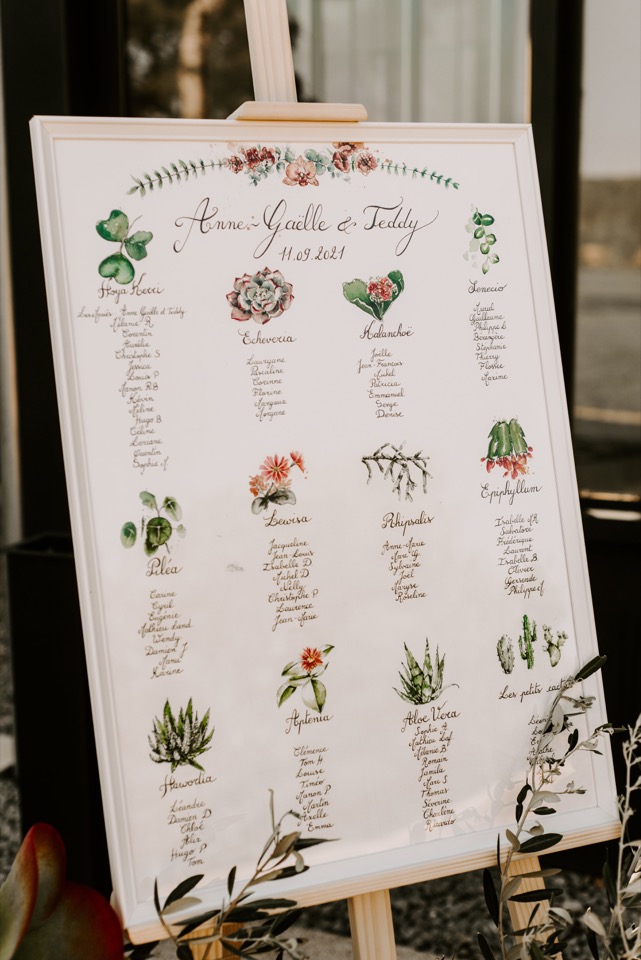 Anne-Gaëlle & Teddy
11.09.2021
Hoya Kerri
Les mariés Anne Gaëlle & Teddy
Mélanie R
Corentin
Aurélie
Christophe S
Jessica
Louis P
Manon RB
Kévin
Méline
Hugo B
Céline
Lorraine
Quentin
Sophie
Echeveria
Lauryane
Pascaline
Corinne
Florine
Margaux
Morgane
Kalanchoë
Joëlle
Jean-François
Isabel
Patricia
Emmanuel
Serge
Denise
Senecio
Guillaume
Philippe
Bérangère
Stéphanie
Thierry
Florine
Maxime
Piléa
Carine
Cyril
Eugénie
Mathieu Land
Wendy
Damien J
Manu
Karine
Lewisa
Jacqueline
Jean-Louis
Isabelle D
Michel D
Nelly
Christophe P
Laurence
Jean-Marie
Rhipsalis
Anne-Marie
Marc G
Sylvaine
Joël
Maryse
Roseline
Epiphyllum
Isabelle
Salvatore
Frédérique
Laurent
Isabelle B
Olivier
Gersende
Philippe
Hawordia
Léandre
Damien D
Chloé
Alix
Hugo P
Tom
Aptenia
Clémence
Tom H
Louise
Timéo
Manon P
Martin
Axelle
Emma
Aloe Vera
Sophie
Mathieu
Mélanie B
Romain
Jamila
Marc S
Thomas
Séverine
Charlène
Ricardo
Les petits